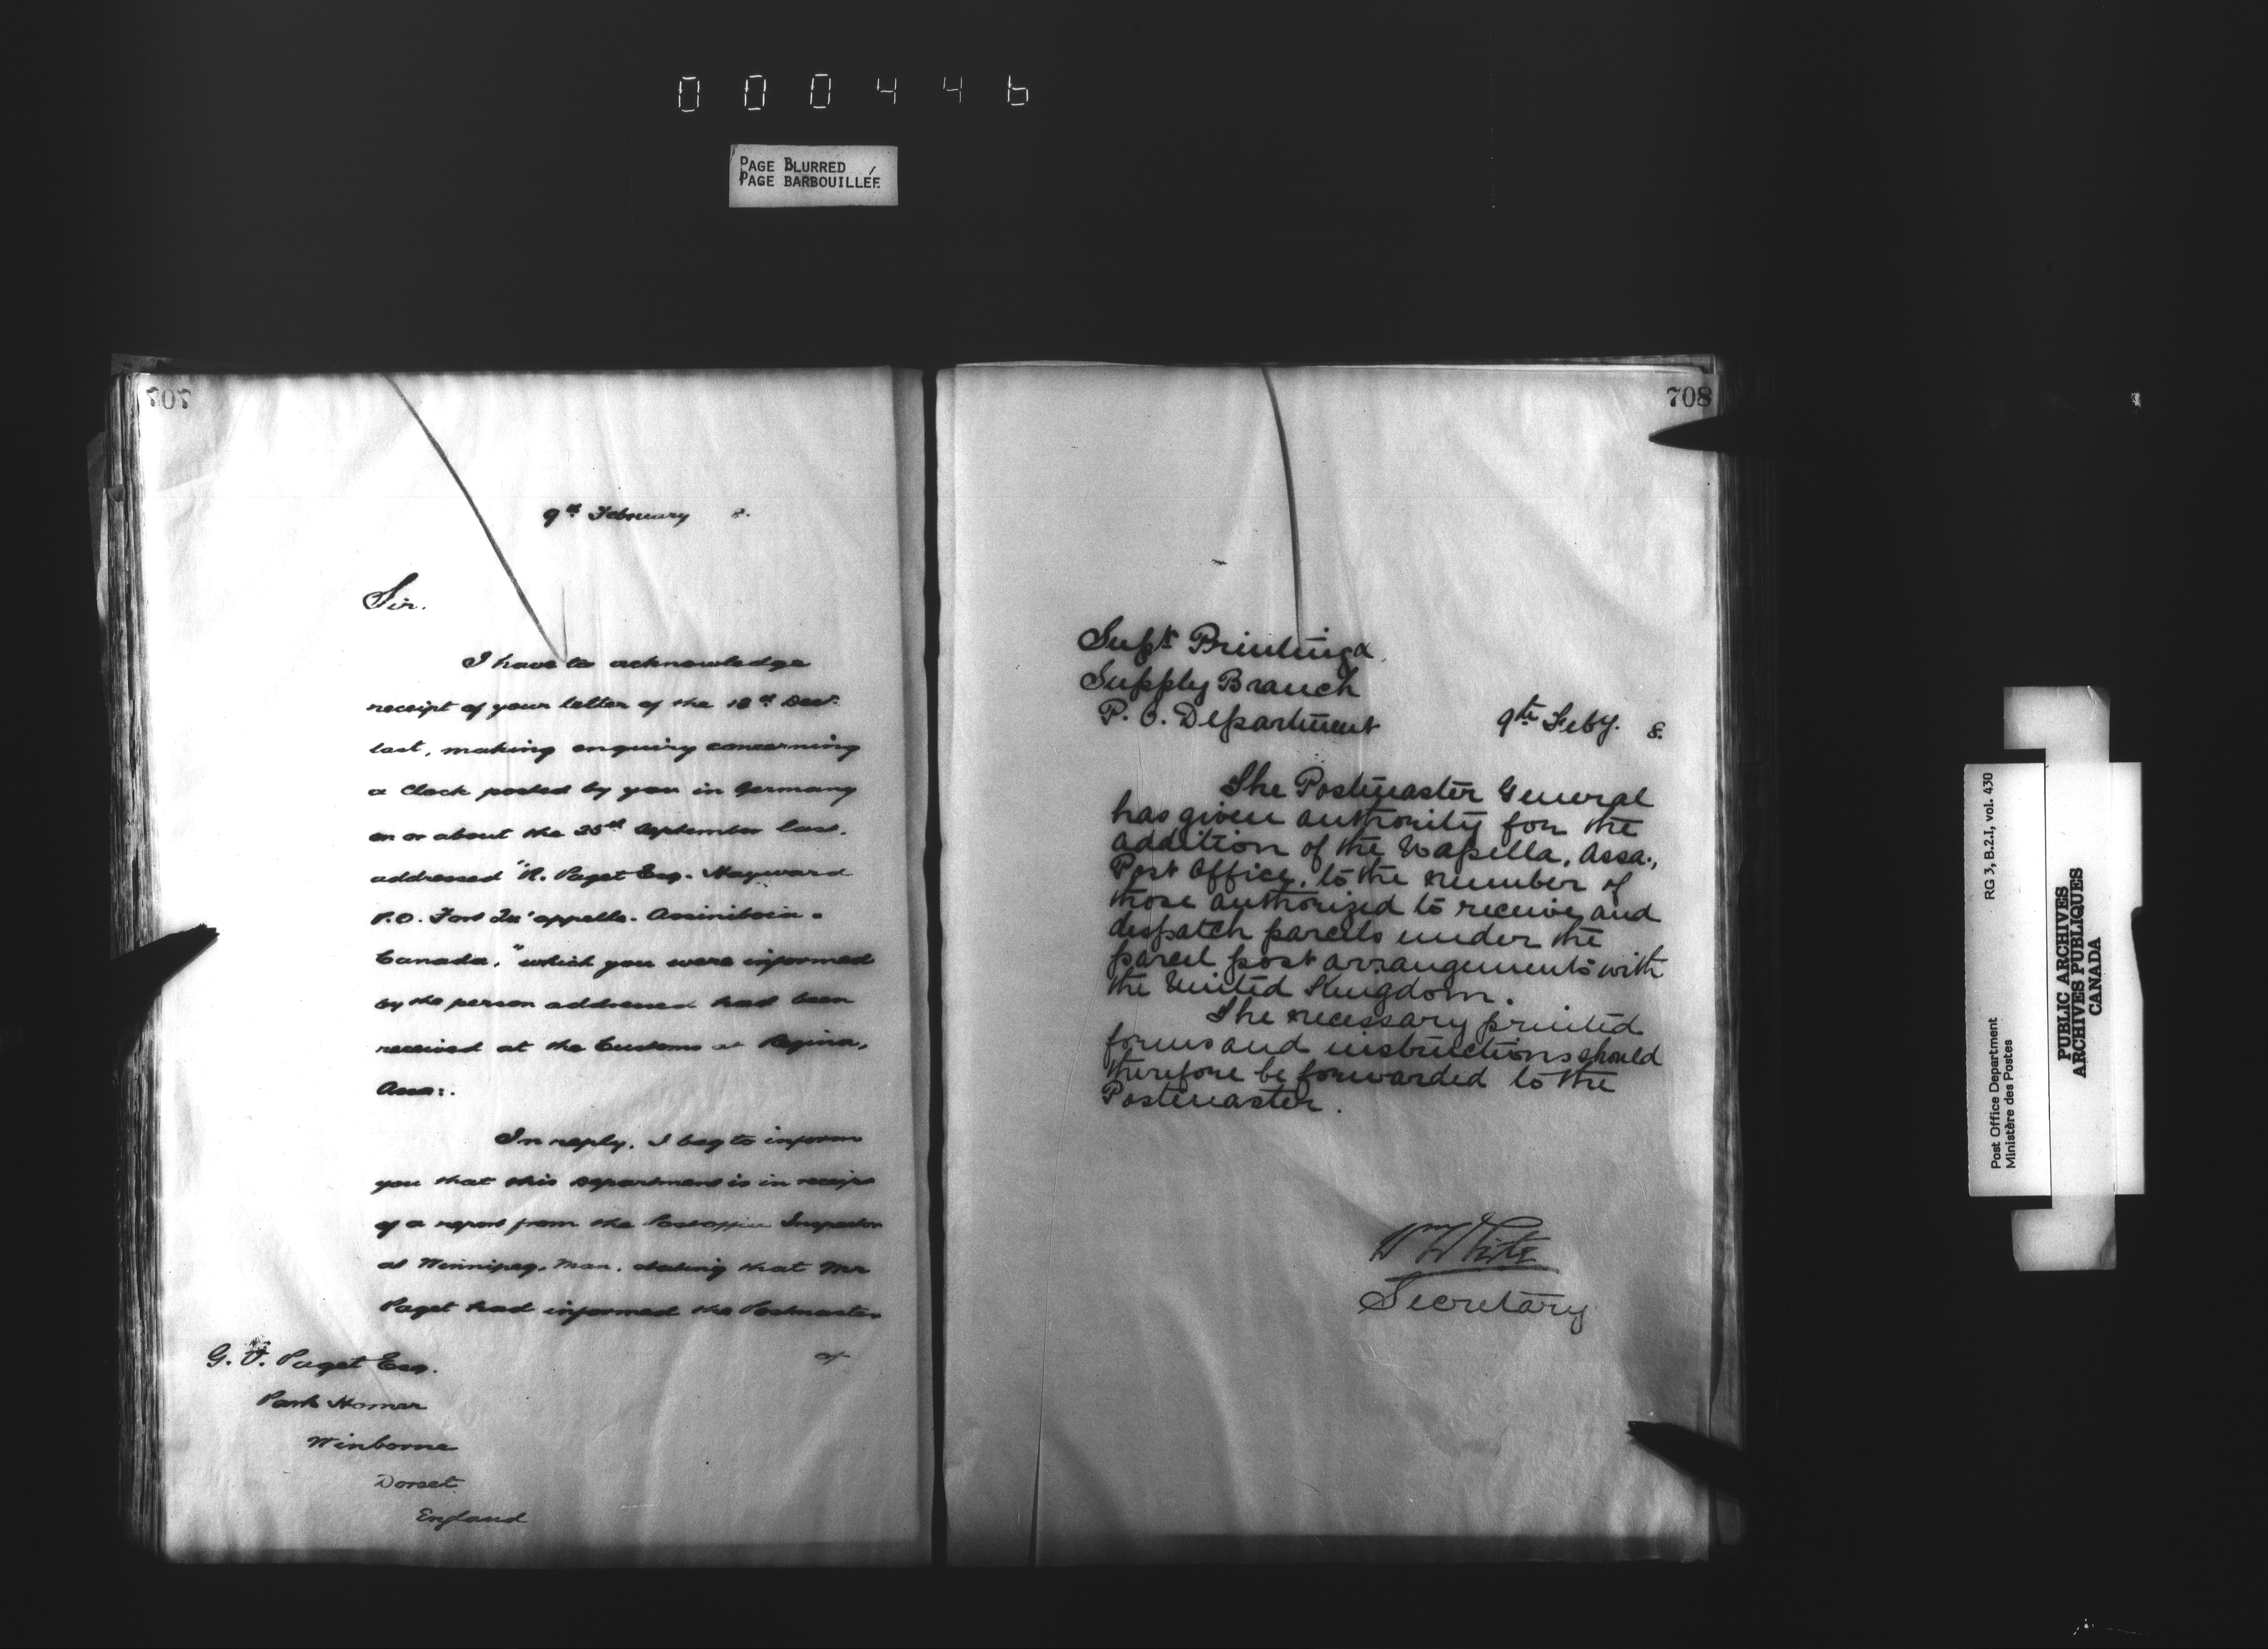 000446
PAGE BLURRED
PAGE BARBOUILLÉE
707
9th February 8.
Sir.
I have to acknowledge
receipt of your letter of the 18th Decr.
last, making enquiry concerning
a Clock posted by you in Germany
on or about the 25th September last.
addressed "R. Paget Esq. Hayward
P.O. Fort Qu'appelle. Assiniboia.
Canada," which you were informed
by the person addressed had been
received at the Customs at Regina,
Assa:.
In reply, I beg to inform
you that this Department is in receipt
of a report from the Postoffice Inspector
at Winnipeg, Man. stating that Mr
Paget had informed the Postmaster
at
G. Paget Esq.
Park Homer
Winborne
Dorset
England
708
Supt Printing &
Supply Branch
P. O. Department
9th Feby. 8.
The Postmaster General
has given authority for the
addition of the Wapella, Assa.,
Post Office, to the number of
those authorized to receive and
despatch parcels under the
parcel post arrangements with
the United Kingdom.
The necessary printed
forms and instructions should
therefore be forwarded to the
Postmaster.
Wm White
Secretary
RG 3, B.2.I, vol. 430
Post Office Department
Ministère des Postes
PUBLIC ARCHIVES
ARCHIVES PUBLIQUES
CANADA